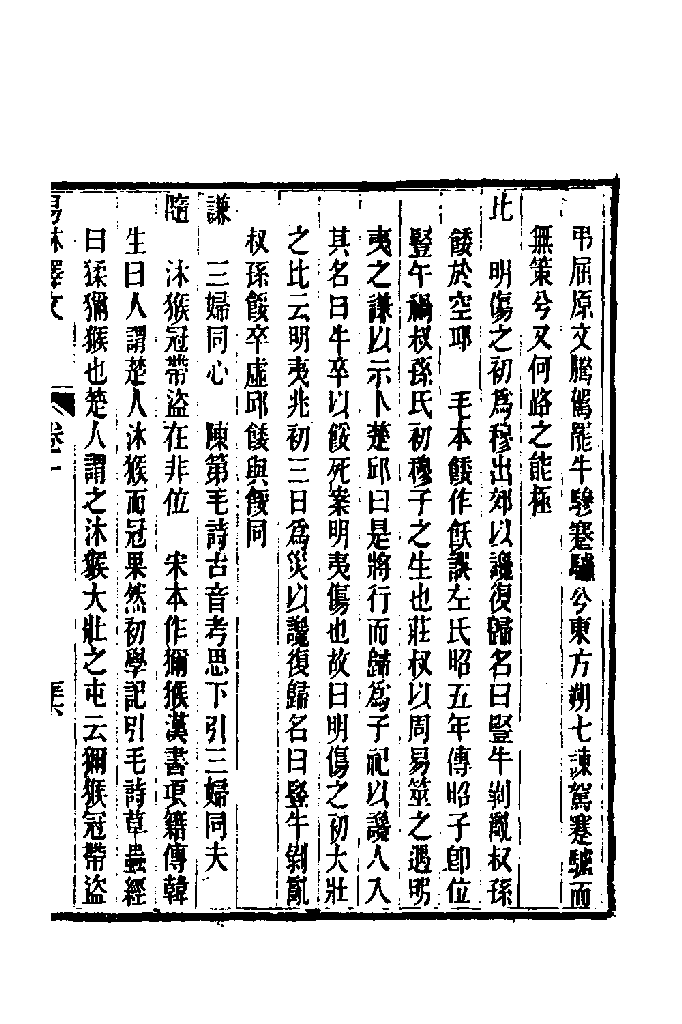 弔屈原文騰駕罷牛驂蹇驢兮東方朔七諫駕蹇驢而
無策兮又何路之能極
比　明傷之初爲穆出郊以讒復歸名曰豎牛剝亂叔孫
餧於空邱　毛本餧作飫誤左氏昭五年傳昭子卽位
豎牛禍叔孫氏初穆子之生也莊叔以周易筮之遇明
夷之謙以示卜楚邱曰是將行而歸爲子祀以讒人入
其名曰牛卒以餒死案明夷傷也故曰明傷之初大壯
之比云明夷兆初三日爲災以讒復歸名曰豎牛剝亂
叔孫餧卒虛邱餧與餒同
謙　三婦同心　陳第毛詩古音考思下引三婦同夫
隨　沐猴冠帶盜在非位　宋本作獼猴漢書項籍傳韓
生曰人謂楚人沐猴而冠果然初學記引毛詩草蟲經
曰猱獼猴也楚人謂之沐猴大壯之屯云獼猴冠帶盜
易林釋文　卷一